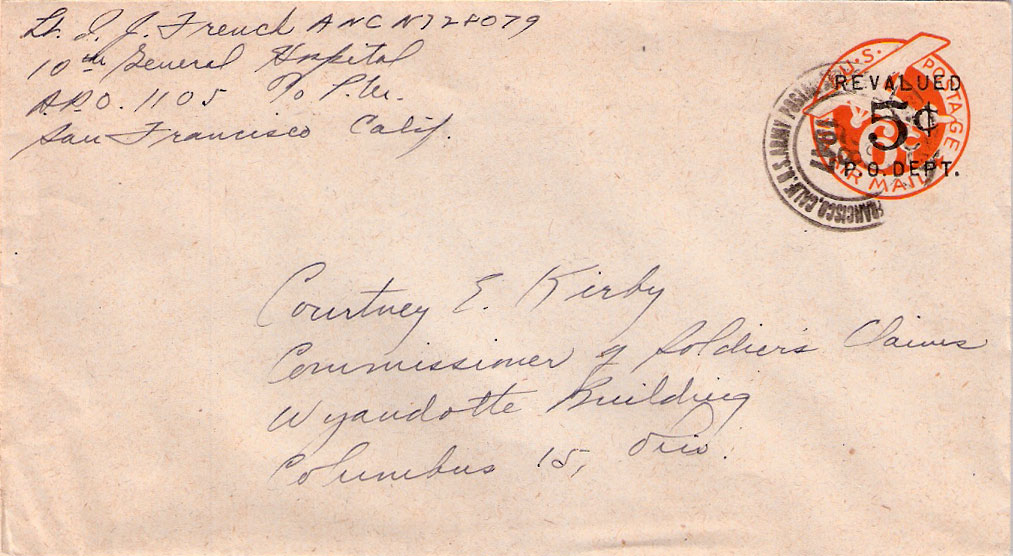 Lt. I. J. French ANC N728079
10th General Hospital
A.P.O. 1105 % P.M.
San Francisco Calif.
U.S. POSTAGE
REVALUED
5¢
6c
P.O. DEPT.
AIR MAIL
FRANCISCO, CALIF. U.S. ARMY POSTAL
1947
Courtney E. Kirby
Commissioner of Soldier's Claims
Wyandotte Building
Columbus 15, Ohio.